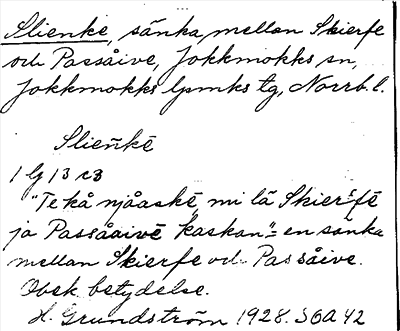 Slienke, sänka mellan Skierfe
och Passåive, Jokkmokks sn,
Jokkmokks lpmks tg, Norrb. l.
Slieńkē
"Tekå njåaskē, mi lä Skierfē
ja Passåaivē kaskan" = en sänka
mellan Skierfe och Passåive.
Obek. betydelse.
H. Grundström 1928. SOA 42